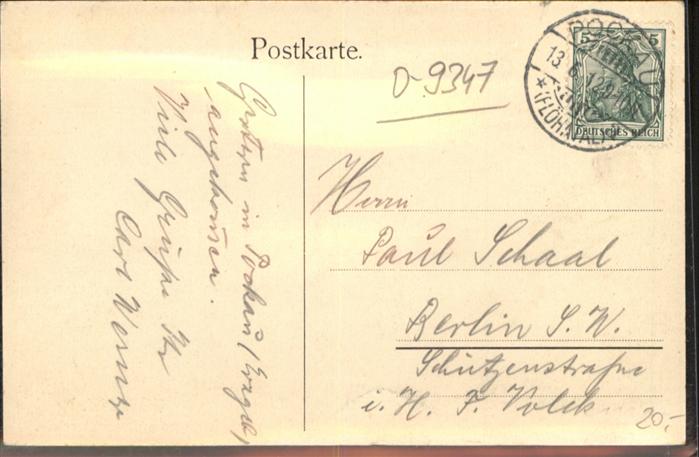 Postkarte.
D-9347
POCKAU
13.6.12.
*(FLÖHATAL)
5 5
DEUTSCHES REICH
Gestern in Pockau/Erzgeb.
angekommen.
Viele Grüße Ihr
Carl Werner
Herrn
Paul Schaal
Berlin S.W.
Schützenstraße
i. H. F. Volck
20.-